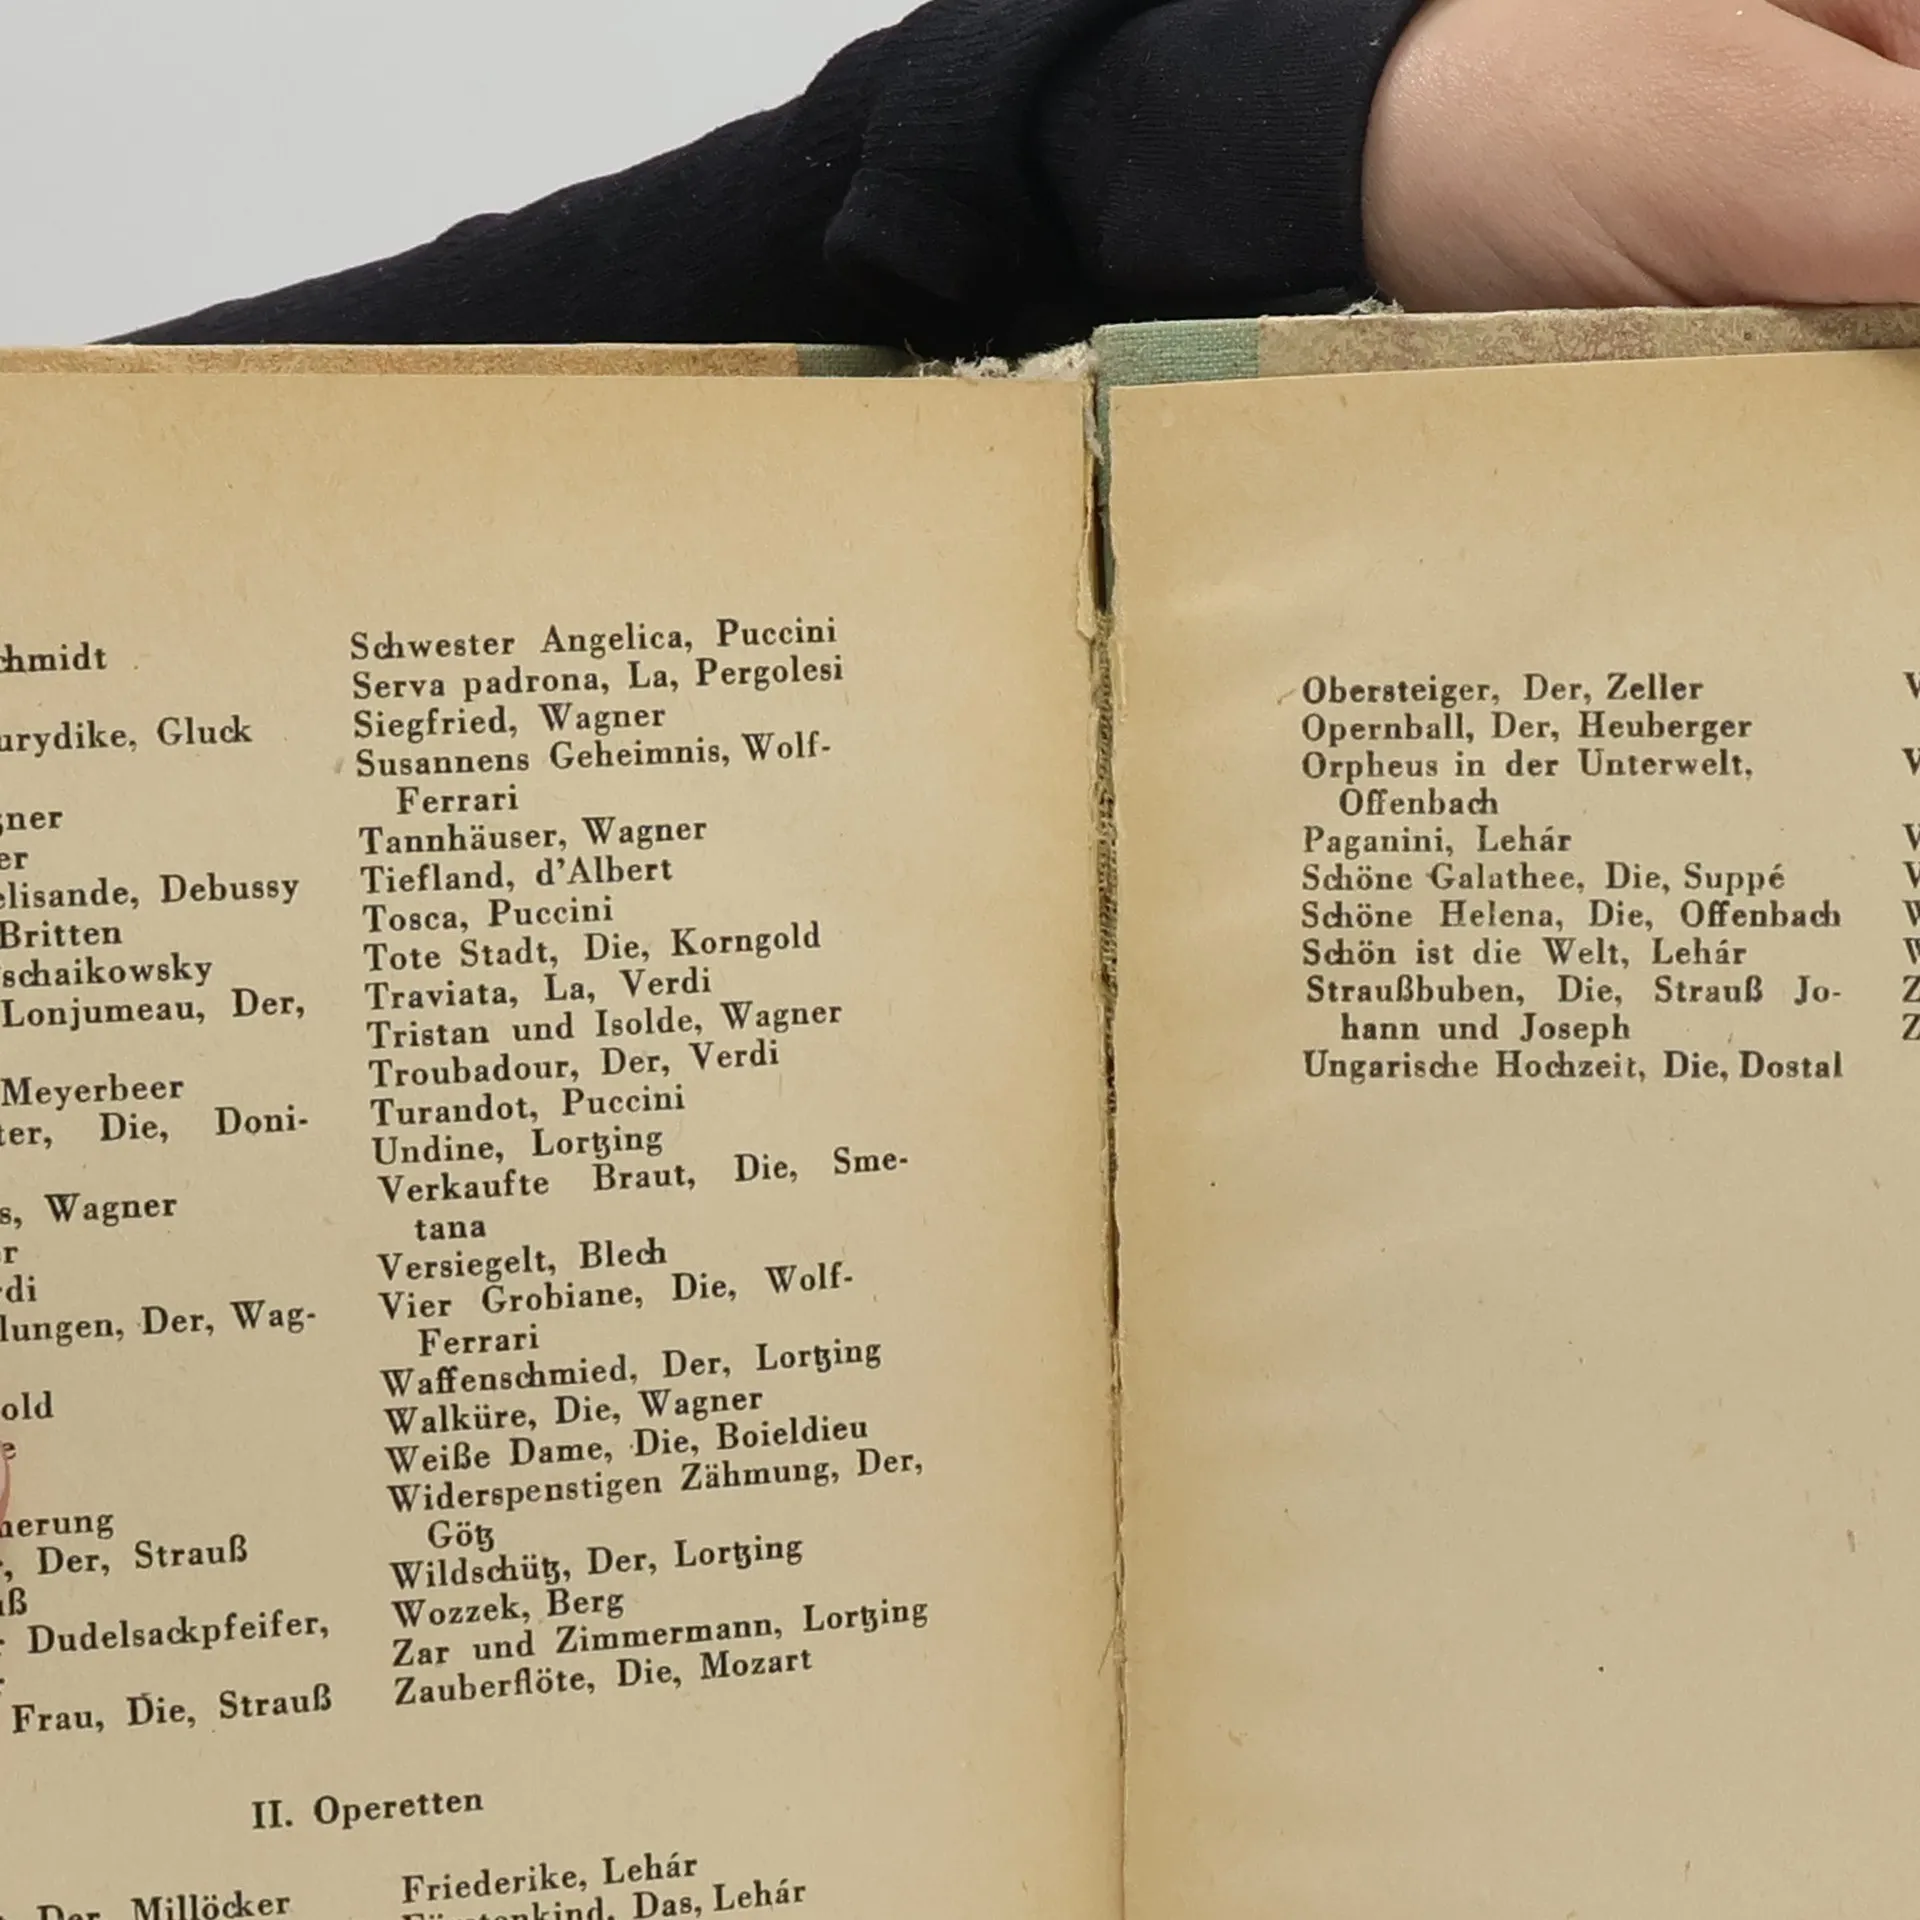 Schmidt
Eurydike, Gluck
Debussy
Britten
Lonjumeau, Der,
Meyerbeer
Die, Doni-
Wagner
Der, Wag-
Der, Strauß
Dudelsackpfeifer,
Frau, Die, Strauß
Schwester Angelica, Puccini
Serva padrona, La, Pergolesi
Siegfried, Wagner
Susannens Geheimnis, Wolf-
Ferrari
Tannhäuser, Wagner
Tiefland, d'Albert
Tosca, Puccini
Tote Stadt, Die, Korngold
Traviata, La, Verdi
Tristan und Isolde, Wagner
Troubadour, Der, Verdi
Turandot, Puccini
Undine, Lortzing
Verkaufte Braut, Die, Sme-
tana
Versiegelt, Blech
Vier Grobiane, Die, Wolf-
Ferrari
Waffenschmied, Der, Lortzing
Walküre, Die, Wagner
Weiße Dame, Die, Boieldieu
Widerspenstigen Zähmung, Der,
Götz
Wildschütz, Der, Lortzing
Wozzek, Berg
Zar und Zimmermann, Lortzing
Zauberflöte, Die, Mozart
II. Operetten
Der, Millöcker
Friederike, Lehár
Das, Lehár
Obersteiger, Der, Zeller
Opernball, Der, Heuberger
Orpheus in der Unterwelt,
Offenbach
Paganini, Lehár
Schöne Galathee, Die, Suppé
Schöne Helena, Die, Offenbach
Schön ist die Welt, Lehár
Straußbuben, Die, Strauß Jo-
hann und Joseph
Ungarische Hochzeit, Die, Dostal